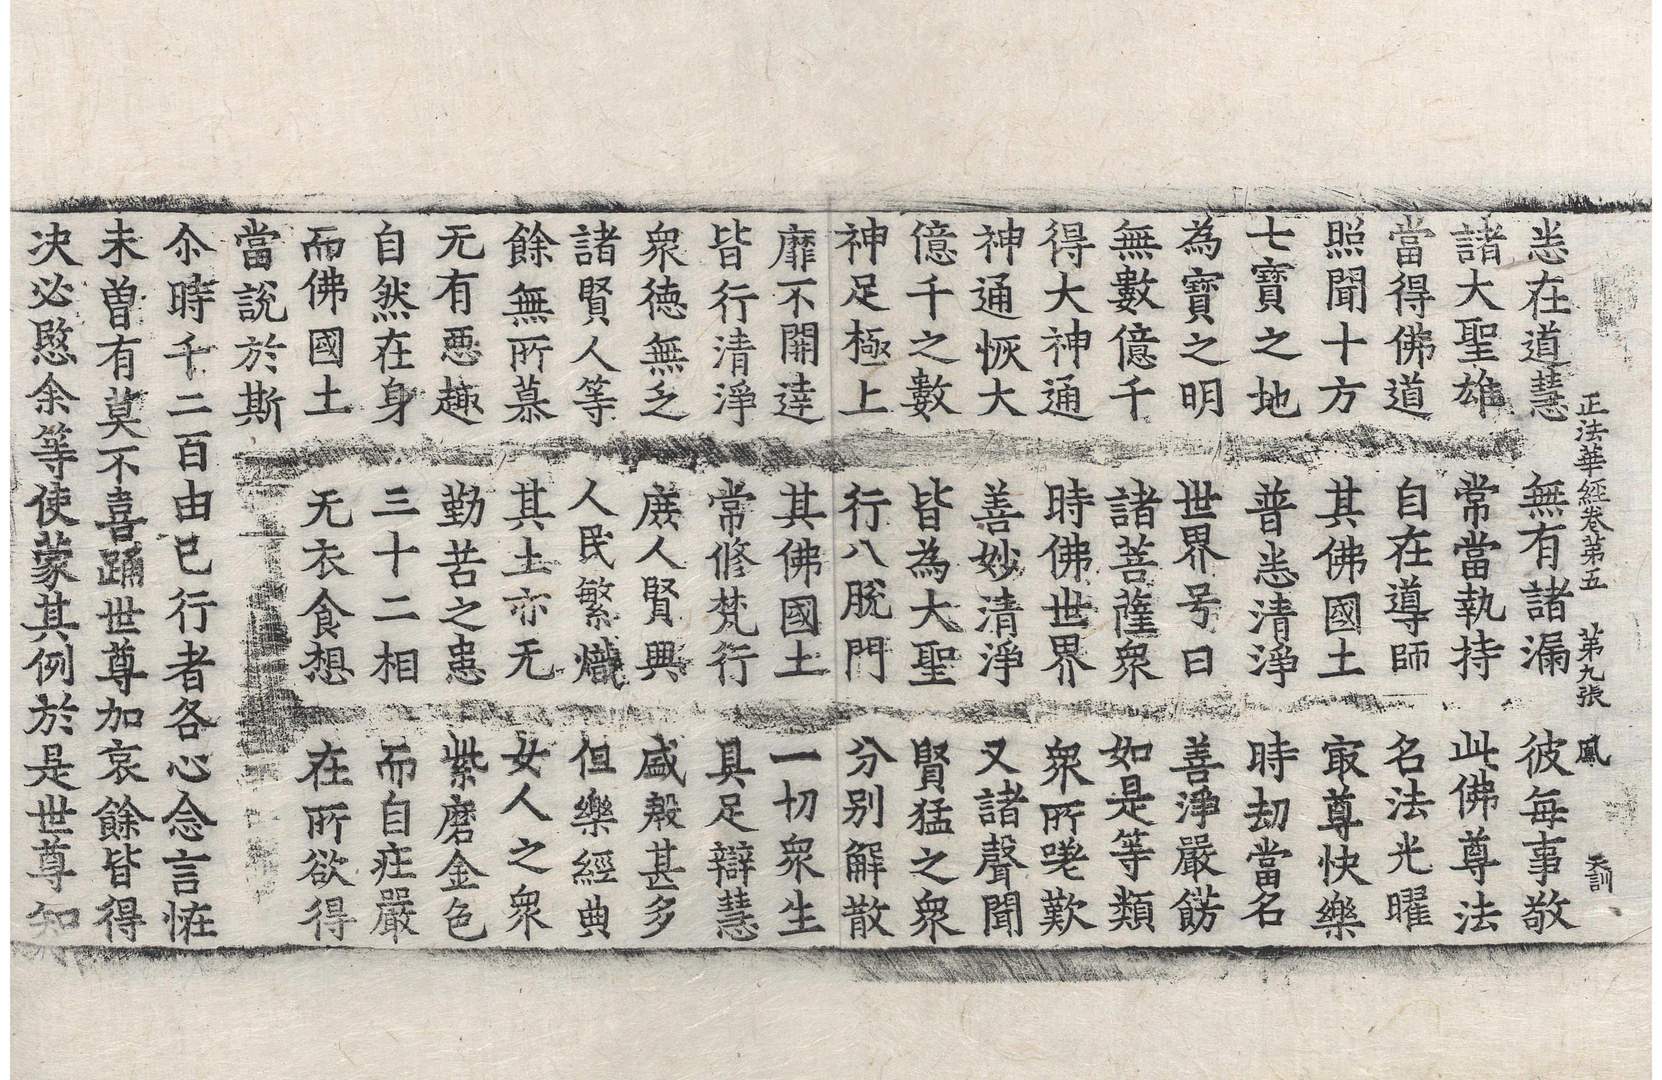 正法華經卷第五 第九張 鳳 天訓
恙在道慧 無有諸漏 彼每事敬
諸大聖雄 常當執持 此佛尊法
當得佛道 自在導師 名法光曜
照聞十方 其佛國土 㝡尊快樂
七寶之地 普恙清淨 時劫當名
為寶之明 世界号曰 善淨嚴餝
無數億千 諸菩薩衆 如是等類
得大神通 時佛世界 衆所嗟歎
神通恢大 善妙清淨 又諸聲聞
億千之數 皆為大聖 賢猛之衆
神足極上 行八脫門 分別解散
靡不開達 其佛國土 一切衆生
皆行清淨 常修梵行 具足辯慧
衆德無乏 庶人賢興 盛穀甚多
諸賢人等 人民繁熾 但樂經典
餘無所慕 其土亦无 女人之衆
无有惡趣 勤苦之患 紫磨金色
自然在身 三十二相 而自庄嚴
而佛國土 无衣食想 在所欲得
當說於斯
尒時千二百由已行者各心念言恠
未曽有莫不喜踊世尊加哀餘皆得
决必愍余等使蒙其例於是世尊知